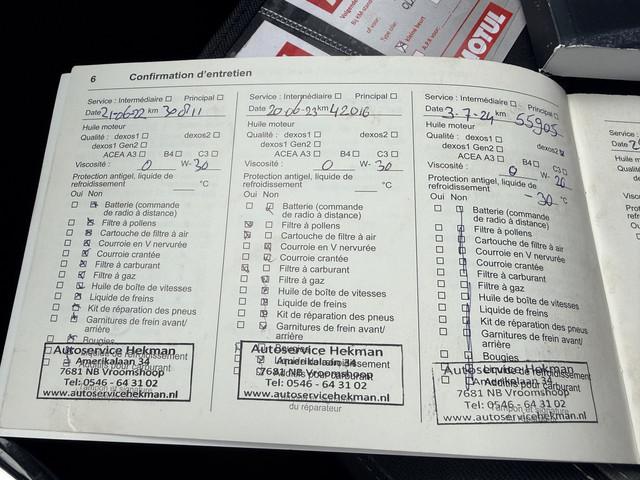 MOTUL
6 Confirmation d'entretien
Service : Intermédiaire Principal
Date 21-06-22 km 30811
Huile moteur
Qualité : dexos1 dexos2
dexos1 Gen2
ACEA A3 B4 C3
Viscosité : 0 W- 30
Protection antigel, liquide de
refroidissement °C
Oui Non
Batterie (commande
de radio à distance)
Filtre à pollens
Cartouche de filtre à air
Courroie en V nervurée
Courroie crantée
Filtre à carburant
Filtre à gaz
Huile de boîte de vitesses
Liquide de freins
Kit de réparation des pneus
Garnitures de frein avant/
arrière
Bougies
Autoservice Hekman
Amerikalaan 34
7681 NB Vroomshoop
Tel: 0546 - 64 31 02
www.autoservicehekman.nl
Service : Intermédiaire Principal
Date 20-06-23 km 42016
Huile moteur
Qualité : dexos1 dexos2
dexos1 Gen2
ACEA A3 B4 C3
Viscosité : 0 W- 30
Protection antigel, liquide de
refroidissement °C
Oui Non
Batterie (commande
de radio à distance)
Filtre à pollens
Cartouche de filtre à air
Courroie en V nervurée
Courroie crantée
Filtre à carburant
Filtre à gaz
Huile de boîte de vitesses
Liquide de freins
Kit de réparation des pneus
Garnitures de frein avant/
arrière
Bougies
Autoservice Hekman
Amerikalaan 34
7681 NB Vroomshoop
Tel: 0546 - 64 31 02
www.autoservicehekman.nl
du réparateur
Service : Intermédiaire Principal
Date 3-7-24 km 55905
Huile moteur
Qualité : dexos1 dexos2
dexos1 Gen2
ACEA A3 B4 C3
Viscosité : 0 W- 20
Protection antigel, liquide de
refroidissement -30 °C
Oui Non
Batterie (commande
de radio à distance)
Filtre à pollens
Cartouche de filtre à air
Courroie en V nervurée
Courroie crantée
Filtre à carburant
Filtre à gaz
Huile de boîte de vitesses
Liquide de freins
Kit de réparation des pneus
Garnitures de frein avant/
arrière
Bougies
Liquide de refroidissement
Additifs pour carburant
Autoservice Hekman
Amerikalaan 34
7681 NB Vroomshoop
Tel: 0546 - 64 31 02
Tampon et signature
www.autoservicehekman.nl